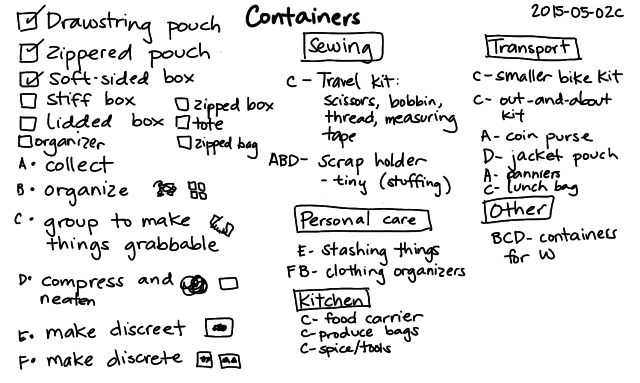 Containers
2015-05-02c
Drawstring pouch
Zippered pouch
Soft-sided box
Stiff box
Lidded box
organizer
zipped box
tote
zipped bag
A. collect
B. organize
C. group to make
things grabbable
D. compress and
neaten
E. make discreet
F. make discrete
Sewing
C - Travel kit:
scissors, bobbin,
thread, measuring
tape
ABD - Scrap holder
- tiny (stuffing)
Personal care
E - stashing things
FB - clothing organizers
Kitchen
C - food carrier
C - produce bags
C - spice/tools
Transport
C - smaller bike kit
C - out-and-about
kit
A - coin purse
D - jacket pouch
A - panniers
C - lunch bag
Other
BCD - containers
for W